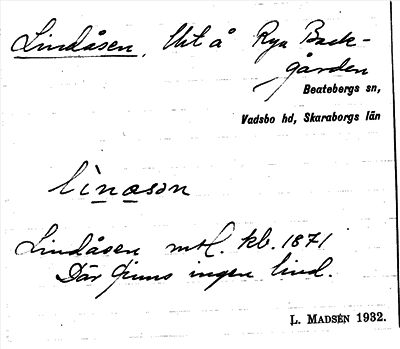 Lindåsen, Utå Rya Back-
gården
Beatebergs sn,
Vadsbo hd, Skaraborgs län
Lindåsen mtl. kb. 1871
Där finns ingen lind.
L. MADSÉN 1932.